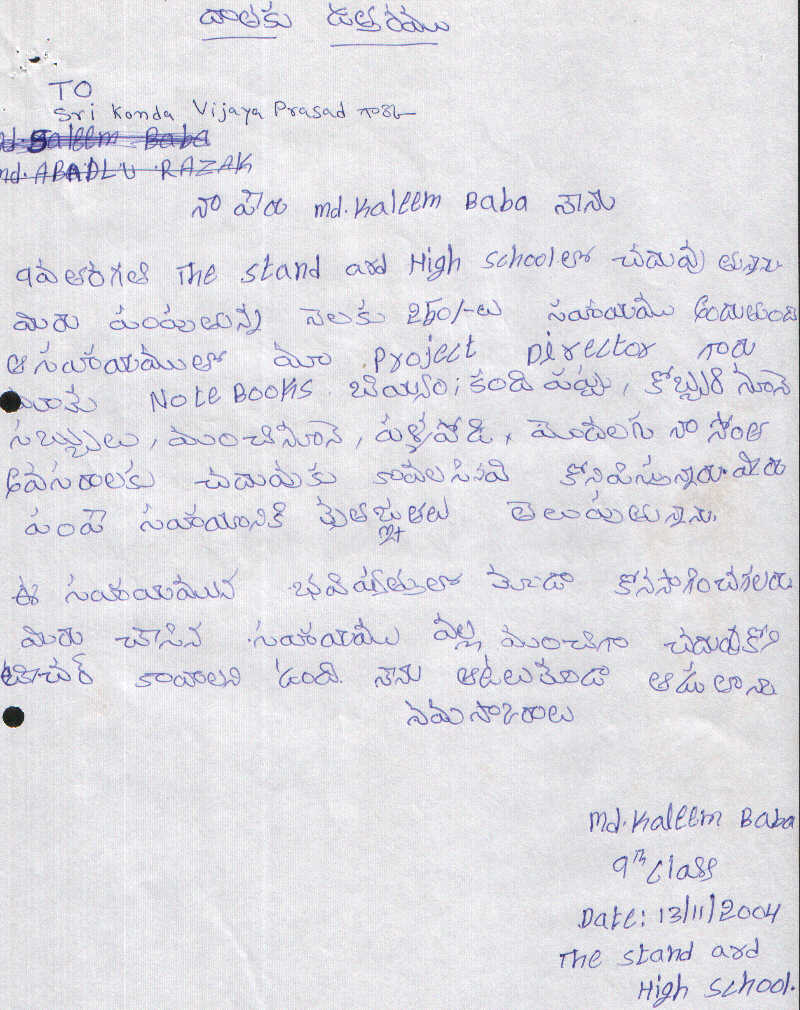 దాతకు ఉత్తరము
TO
Sri Konda Vijaya Prasad గారు
Md. Saleem Baba
Md. ABADLU RAZAK
నా పేరు md. Kaleem Baba నేను
9వ తరగతి The stand ard High school లో చదువు తున్నాను
మీరు పంపుతున్న నెలకు 250/-లు సహాయము అందుతుంది
ఆ సహాయములో మా Project Director గారు
మాకు Note Books బియ్యం, కంది పప్పు, కొబ్బరి నూనె
సబ్బులు, మంచినూనె, పళ్ళపొడి, మొదలగు నా సొంత
అవసరాలకు చదువుకు కావలసినవి కొనిపిస్తున్నారు. మీరు
పంపే సహాయానికి కృతజ్ఞతలు తెలుపుతున్నాను.
ఈ సహాయమును భవిష్యత్తులో కూడా కొనసాగించగలరు
మీరు చేసిన సహాయము వల్ల మంచిగా చదువుకొని
టీచర్ కావాలని ఉంది. నేను ఆటలు కూడా ఆడుతాను
నమస్కారాలు
Md. Kaleem Baba
9TH Class
Date: 13/11/2004
The stand ard
High school.